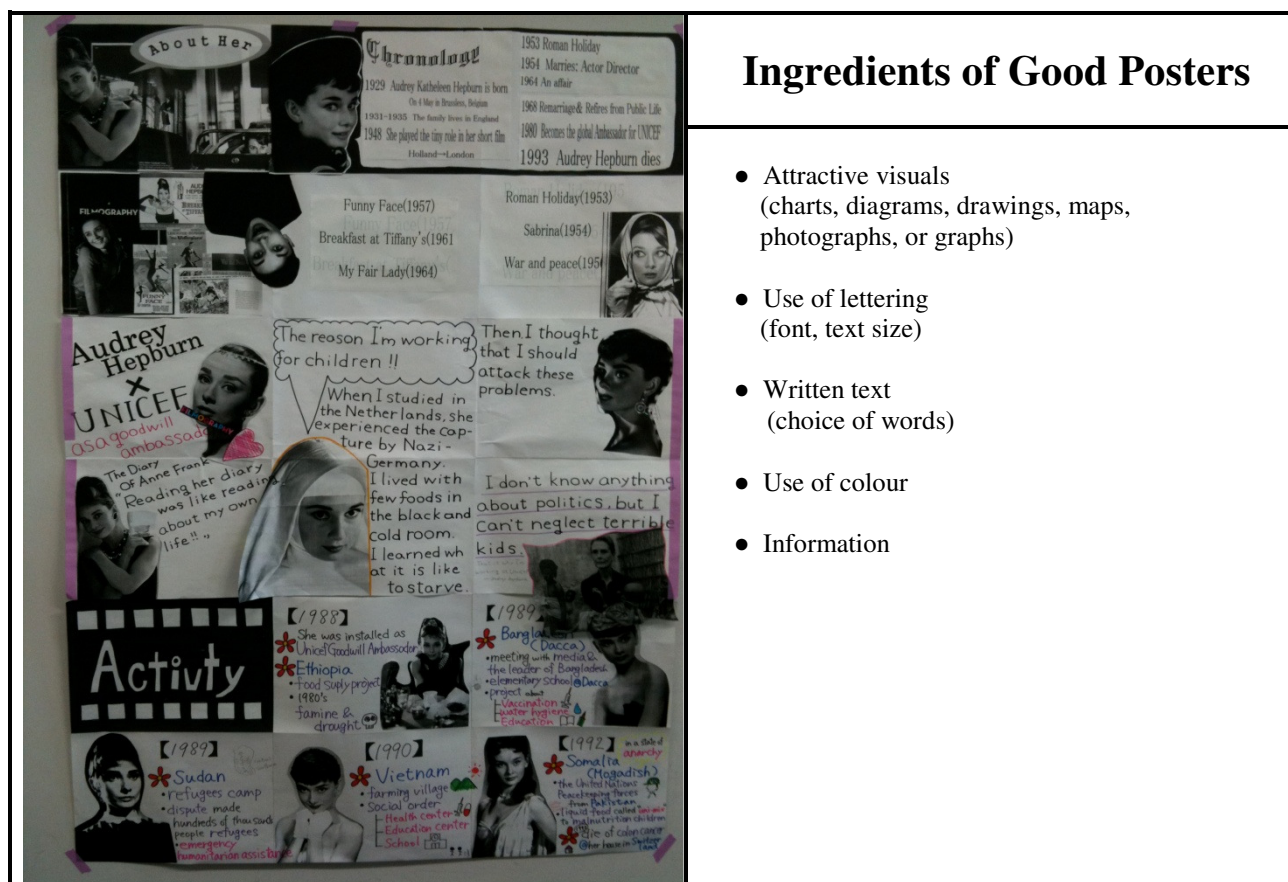 About Her
Chronology
1929 Audrey Katheleen Hepburn is born
On 4 May in Brussless, Belgium
1931-1935 The family lives in England
1948 She played the tiny role in her short film
Holland→London
1953 Roman Holiday
1954 Marries: Actor Director
1964 An affair
1968 Remarriage& Refires from Public Life
1980 Becomes the global Ambassador for UNICEF
1993 Audrey Hepburn dies
FILMOGRAPHY
FUNNY FACE
Funny Face(1957)
Breakfast at Tiffany's(1961
My Fair Lady(1964)
Roman Holiday(1953)
Sabrina(1954)
War and peace(195
Audrey
Hepburn
×
UNICEF
as a goodwill
ambassado
The reason I'm working
for children !!
When I studied in
the Netherlands, she
experienced the cap-
ture by Nazi-
Germany.
I lived with
few foods in
the black and
cold room.
I learned wh
at it is like
to starve.
Then. I thought
that I should
attack these
problems.
The Diary
Of Anne Frank
"Reading her diary
was like reading
about my own
life!! "
I don't know anything
about politics, but I
can't neglect terrible
kids.
Activty
【1988】
She was installed as
Unicef Goodwill Ambassador
Ethiopia
・food suply project
・1980's
famine &
drought
【1989】
Bangla
(Dacca)
・meeting with media &
the leader of Bangladesh
・elementary school @Dacca
・project about
Vaccination
water hygiene
Education
【1989】
Sudan
・refugees camp
・dispute made
hundreds of thousands
people refugees
・emergency
humanitarian assistance
【1990】
Vietnam
・farming village
・Social order
Health center
Education center
School
【1992】
in a state of
anarchy
Somalia
(Mogadish)
・the United Nations
Peacekeeping forces
from Pakistan
・liquid food called
to malnutrition children
die of colon cancer
@her house in Switzer
land
Ingredients of Good Posters
● Attractive visuals
(charts, diagrams, drawings, maps,
photographs, or graphs)
● Use of lettering
(font, text size)
● Written text
(choice of words)
● Use of colour
● Information